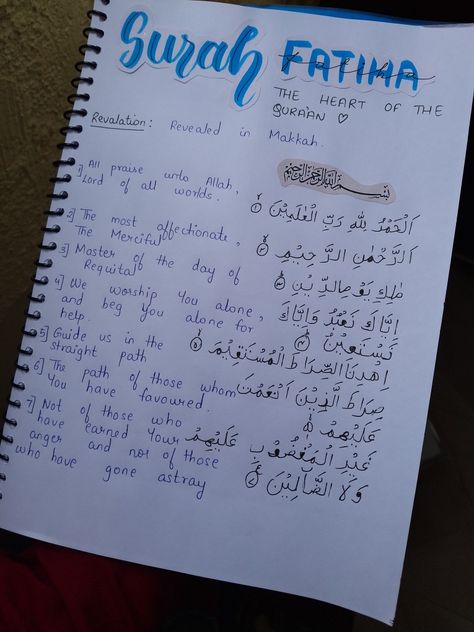 Surah FATIHA
Fatiha
THE HEART OF THE
QURA'AN ♡
Revalation: Revealed in Makkah.
بسم الله الرحمن الرحيم
1) All praise unto Allah,
Lord of all worlds.
اَلْحَمْدُ لِلّٰهِ رَبِّ الْعٰلَمِيْنَ ١
2) The most affectionate,
The Merciful
اَلرَّحْمٰنِ الرَّحِيْمِ ٢
3) Master of the day of
Requital
مٰلِكِ يَوْمِ الدِّيْنِ ٣
4) We worship You alone,
and beg you alone for
help.
اِيَّاكَ نَعْبُدُ وَاِيَّاكَ
نَسْتَعِيْنُ ٤
5) Guide us in the
straight path
اِهْدِنَا الصِّرَاطَ الْمُسْتَقِيْمَ ٥
6) The path of those whom
You have favoured.
صِرَاطَ الَّذِيْنَ اَنْعَمْتَ
عَلَيْهِمْ ٦
7) Not of those who
have earned Your
anger and not of those
who have gone astray
غَيْرِ الْمَغْضُوْبِ عَلَيْهِمْ
وَلَا الضَّالِّيْنَ ٧